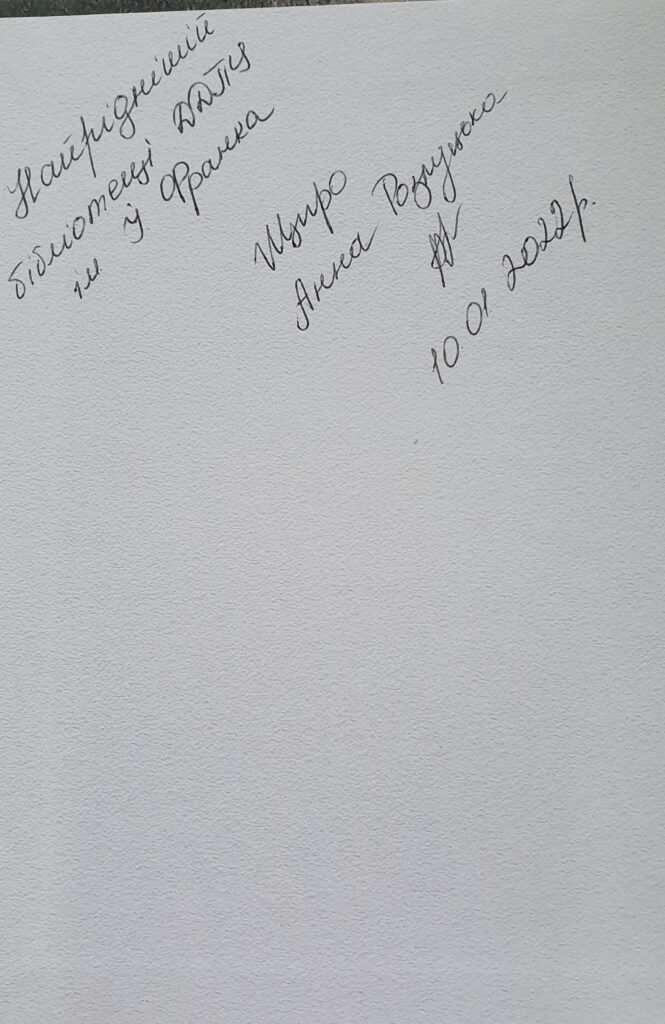 Найріднішій
бібліотеці ДДПУ
ім І Франка
Щиро
Анна
10.01 2022 р.